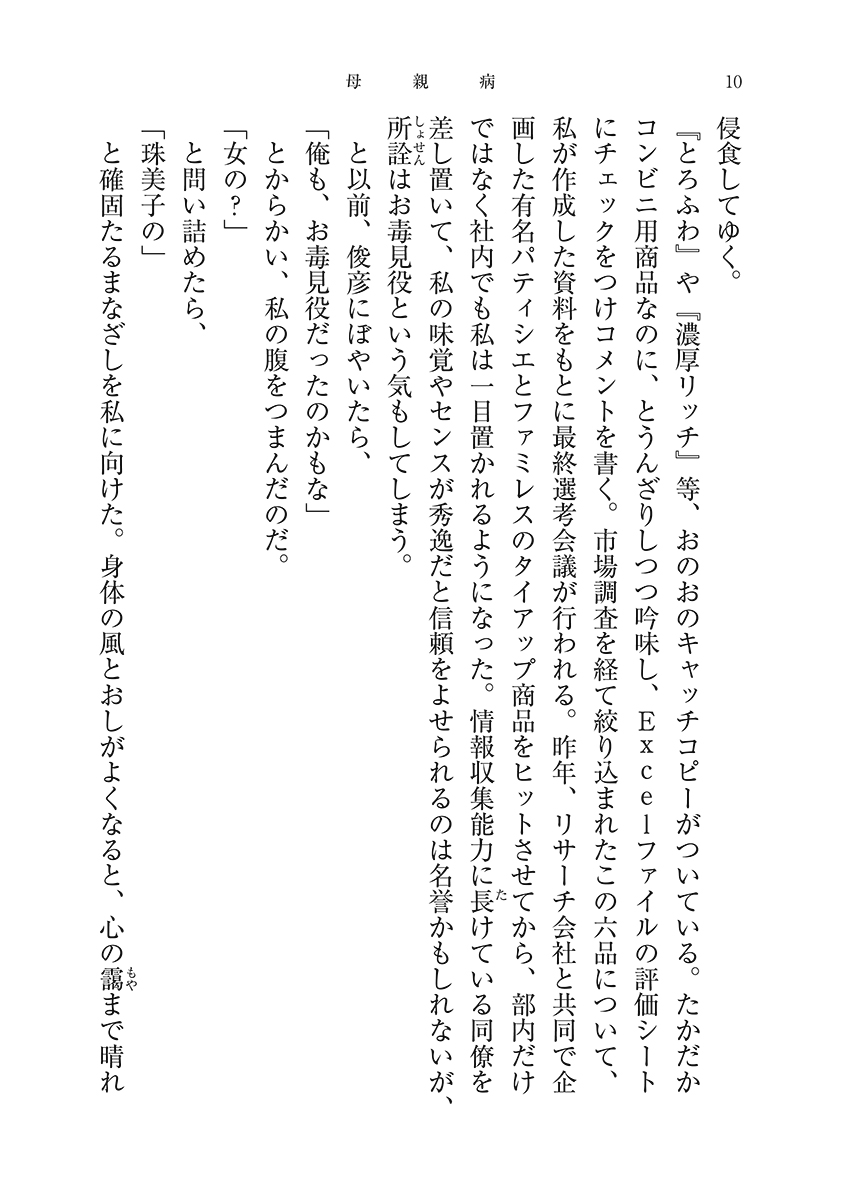 母親病
10
侵食してゆく。
『とろふわ』や『濃厚リッチ』等、おのおのキャッチコピーがついている。たかだか
コンビニ用商品なのに、とうんざりしつつ吟味し、Excelファイルの評価シート
にチェックをつけコメントを書く。市場調査を経て絞り込まれたこの六品について、
私が作成した資料をもとに最終選考会議が行われる。昨年、リサーチ会社と共同で企
画した有名パティシエとファミレスのタイアップ商品をヒットさせてから、部内だけ
ではなく社内でも私は一目置かれるようになった。情報収集能力に長けている同僚を
差し置いて、私の味覚やセンスが秀逸だと信頼をよせられるのは名誉かもしれないが、
所詮はお毒見役という気もしてしまう。
と以前、俊彦にぼやいたら、
「俺も、お毒見役だったのかもな」
とからかい、私の腹をつまんだのだ。
「女の？」
と問い詰めたら、
「珠美子の」
と確固たるまなざしを私に向けた。身体の風とおしがよくなると、心の靄まで晴れ